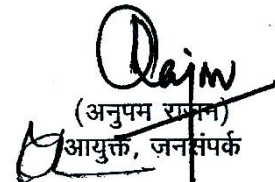 (अनुपम राजन)
आयुक्त, जनसंपर्क